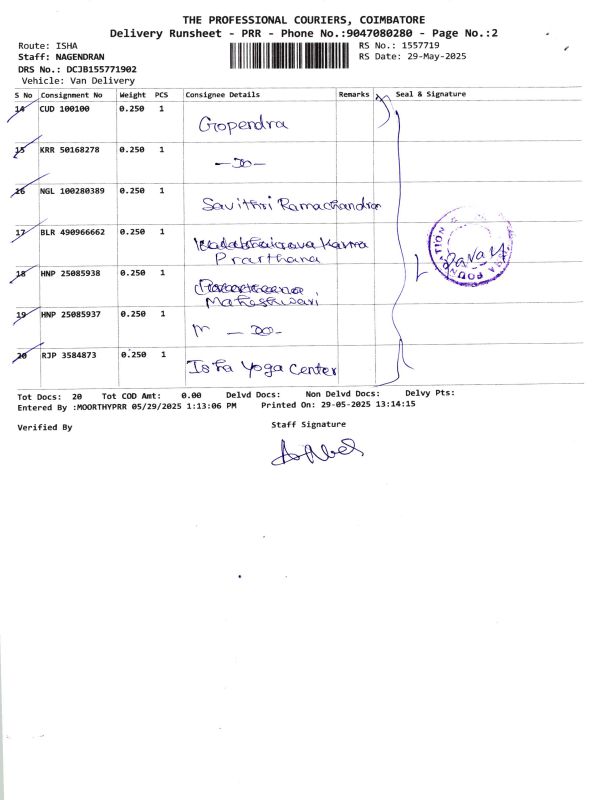 THE PROFESSIONAL COURIERS, COIMBATORE
Delivery Runsheet - PRR - Phone No.:9047080280 - Page No.:2
Route: ISHA
RS No.: 1557719
Staff: NAGENDRAN
RS Date: 29-May-2025
DRS No.: DCJB155771902
Vehicle: Van Delivery
S No Consignment No Weight PCS Consignee Details Remarks Seal & Signature
14 CUD 100100 0.250 1 Gopendra
15 KRR 50168278 0.250 1 —Do—
16 NGL 100280389 0.250 1 Savithri Ramachandran
17 BLR 490966662 0.250 1 Karma
Prarthana
18 HNP 25085938 0.250 1
Maheshwari
19 HNP 25085937 0.250 1 — Do-
20 RJP 3584873 0.250 1 Isha Yoga Center
FOUNDATION
Tot Docs: 20 Tot COD Amt: 0.00 Delvd Docs: Non Delvd Docs: Delvy Pts:
Entered By :MOORTHYPRR 05/29/2025 1:13:06 PM Printed On: 29-05-2025 13:14:15
Verified By
Staff Signature